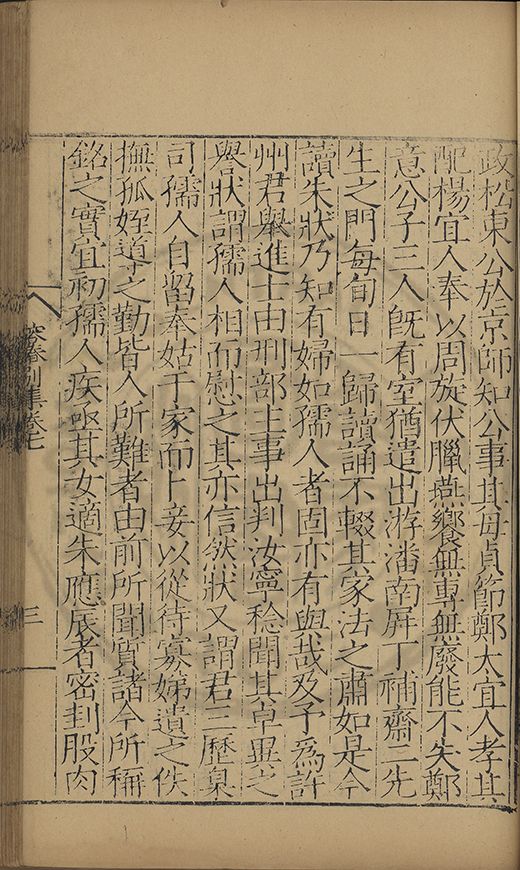 政松東公於京師知公事其母貞節鄭太宜人孝其
配楊宜人奉以周旋伏臘燕饗無專無廢能不失鄭
意公子三人旣有室猶遣出游潘南屏丁補齋二先
生之門每旬日一歸讀誦不輟其家法之肅如是今
讀朱狀乃知有婦如孺人者固亦有與哉及予爲許
州君舉進士由刑部主事出判汝寧稔聞其卓異之
譽狀謂孺人相而慰之其亦信然狀又謂君三歷臬
司孺人自留奉姑于家而卜妾以從待寡娣遺之佚
撫孤姪導之勤皆人所難者由前所聞質諸今所稱
銘之實宜初孺人疾亟其女適朱應辰者密刲股肉
別集卷七
三